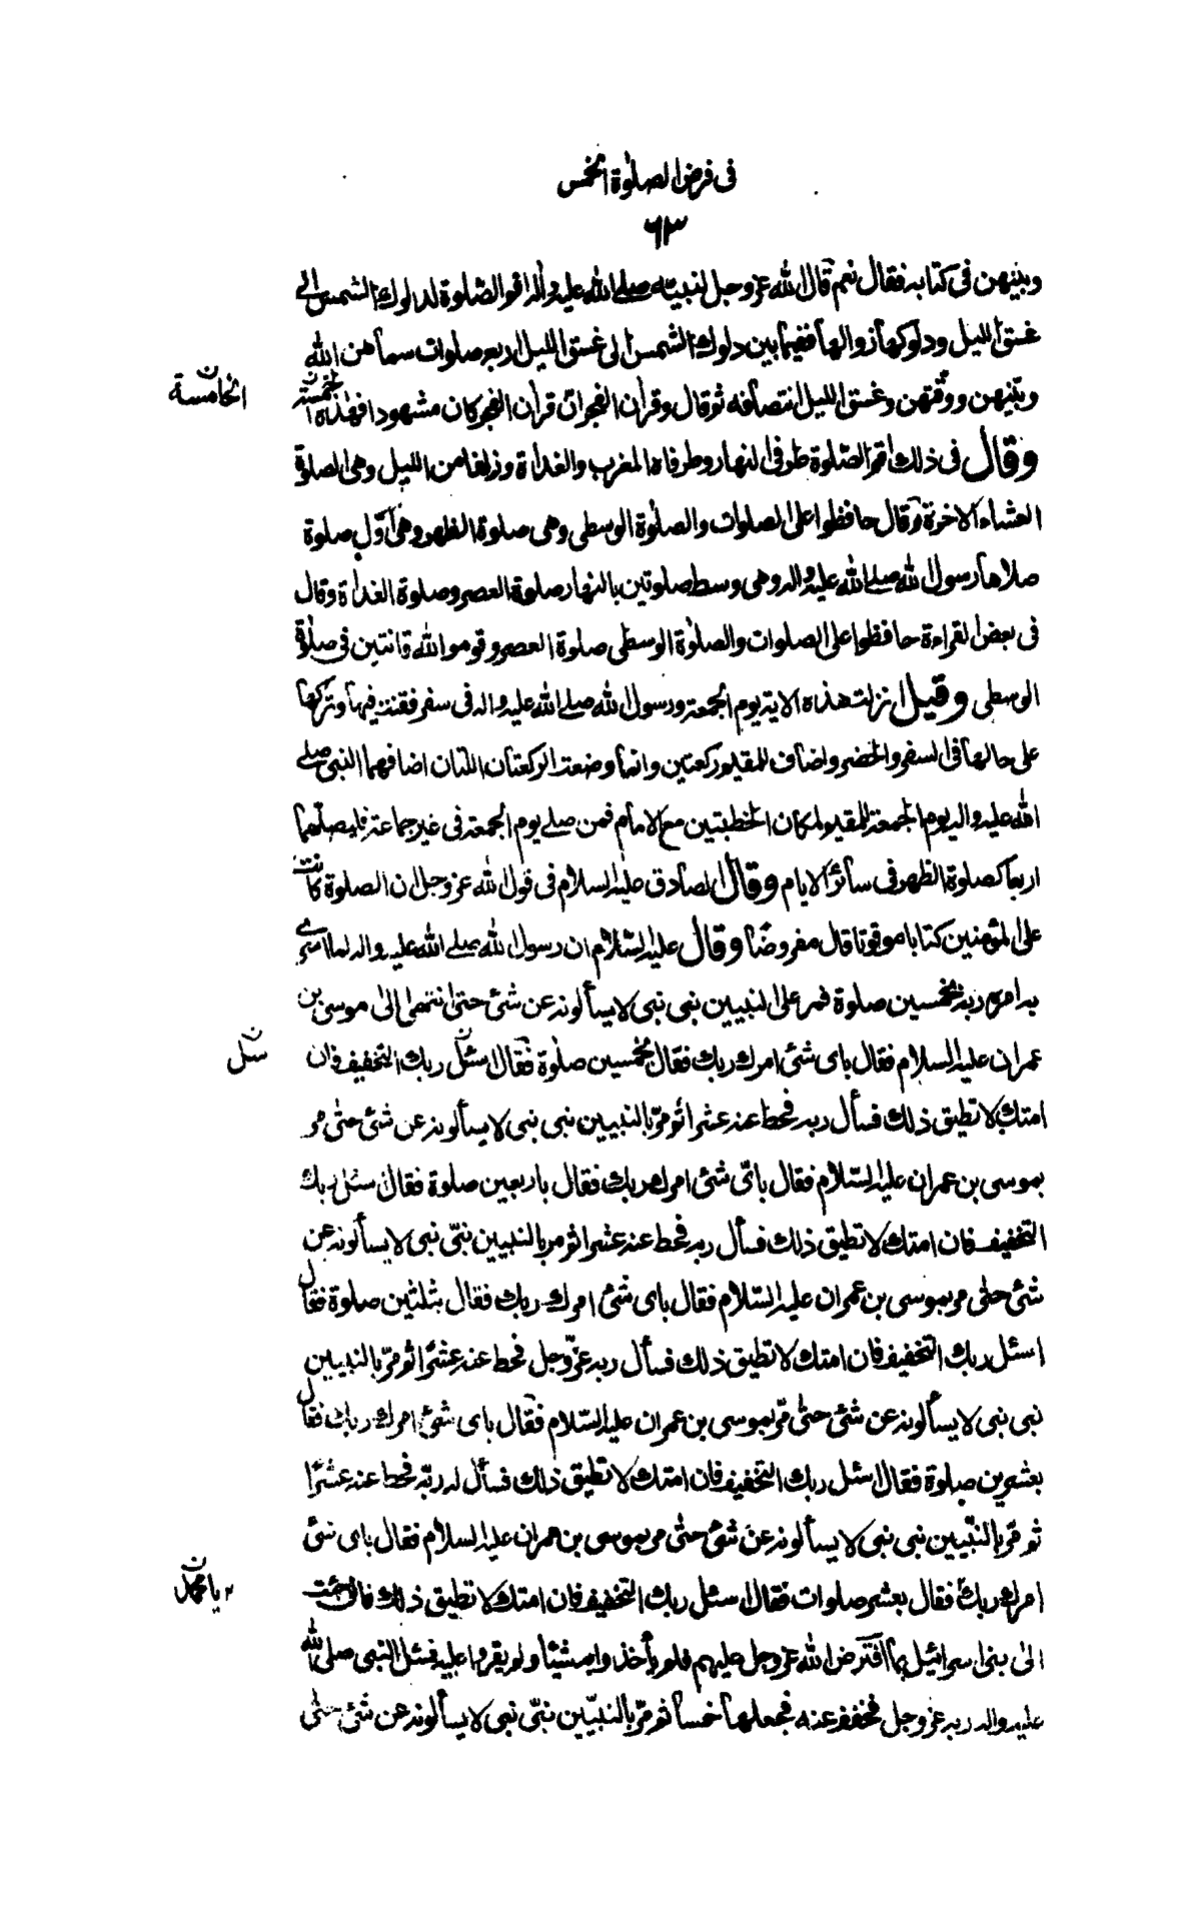 فى فرض الصلوٰة الخمس
٦٣
وبينهن فى كتابه فقال نعم قال الله عز وجل لنبيه صلے الله عليه واٰله اقم الصّلوة لدلوك الشمس الى
غسق الليل ودلوكها زوالها ففيما بين دلوك الشمس الى غسق الليل اربع صلوات سماهن الله
وبيّنهن ووقّتهن وغسق الليل انتصافه ثم قال وقراٰن الفجر ان قراٰن الفجر كان مشهودا فهذه الخمسة
الخامسة ن
وقال فى ذلك اقم الصّلوة طرفى النهار وطرفاه المغرب والغداة وزلفا من الليل وهى الصلوة
العشاء الاخرة وقال حافظوا على الصلوات والصلوٰة الوسطى وهى صلوة الظهر وهى اوّل صلوة
صلاها رسول الله صلے الله عليه واٰله وهى وسط صلوتين بالنهار صلوة العصر وصلوة الغداة وقال
فى بعض القراءة حافظوا على الصلوات والصلوٰة الوسطى صلوة العصر وقوموا لله قانتين فى صلوٰة
الوسطى وقيل انزلت هذه الاية يوم الجمعة ورسول الله صلے الله عليه واله فى سفر فقنت فيها وتركها
على حالها فى السفر والحضر واضاف للمقيم ركعتين وانما وضعت الركعتان اللتان اضافهما النبى صلے
الله عليه واله يوم الجمعة للمقيم لمكان الخطبتين مع الامام فمن صلے يوم الجمعة فى غير جماعة فليصلّها
اربعا كصلوة الظهر فى سائر الايام وقال الصادق عليه السلام فى قول الله عز وجل ان الصلوة كانت
على المؤمنين كتابا موقوتا قال مفروضًا وقال عليه السّلام ان رسول الله صلے الله عليه واله لما اسرى
به امره ربه بخمسين صلوة فمر على النبيين نبى نبى لا يسألونه عن شئ حتى انتهى الىٰ موسى بن
عمران عليه السلام فقال باى شئ امرك ربك فقال بخمسين صلوٰة فقال اسئل ربك التخفيف فان
سَل ن
امتك لا تطيق ذلك فسأل ربه فحط عنه عشرا ثم مرّ بالنبيين نبى نبى لا يسألونه عن شئ حتى مر
بموسى بن عمران عليه السّلام فقال باىّ شئ امرك ربك فقال باربعين صلوة فقال سئل ربك
التخفيف فان امتك لا تطيق ذلك فسأل ربه فحط عنه عشرا ثم مر بالنبيين نبىّ نبى لا يسألونه عن
شئ حتى مر بموسى بن عمران عليه السّلام فقال باى شئ امرك ربك فقال بثلثين صلوة فقال
اسئل ربك التخفيف فان امتك لا تطيق ذلك فسأل ربه عزّ وجل فحط عنه عشرًا ثم مرّ بالنبيين
نبى نبى لا يسألونه عن شئ حتى مرّ بموسى بن عمران عليه السّلام فقال باى شئ امرك ربك فقال
بعشرين صلوة فقال اسئل ربك التخفيف فان امتك لا تطيق ذلك فسأل له ربّه فحط عنه عشرًا
ثم مرّ بالنبّيين نبى نبى لا يسألونه عن شئ حتى مر بموسى بن عمران عليه السلام فقال باى شئ
امرك ربك فقال بعشر صلوات فقال اسئل ربك التخفيف فان امتك لا تطيق ذلك فانى جئت
يا محمد ن
الىٰ بنى اسرائيل بما افترض الله عز وجل عليهم فلم يأخذوا به شيئا ولم يقروا عليه فسئل النبى صلى الله
عليه واله ربه عز وجل فخفف عنه فجعلها خمسا ثم مرّ بالنبيّين نبّى نبى لا يسألونه عن شئ حتى